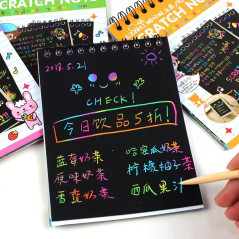 SCRATCH NOTE
SCRATCH NOTE
2018.5.21
CHECK!
今日饮品5折!
蓝莓奶茶
哈密瓜奶茶
原味奶茶
柠檬柚子茶
香芋奶茶
西瓜果汁